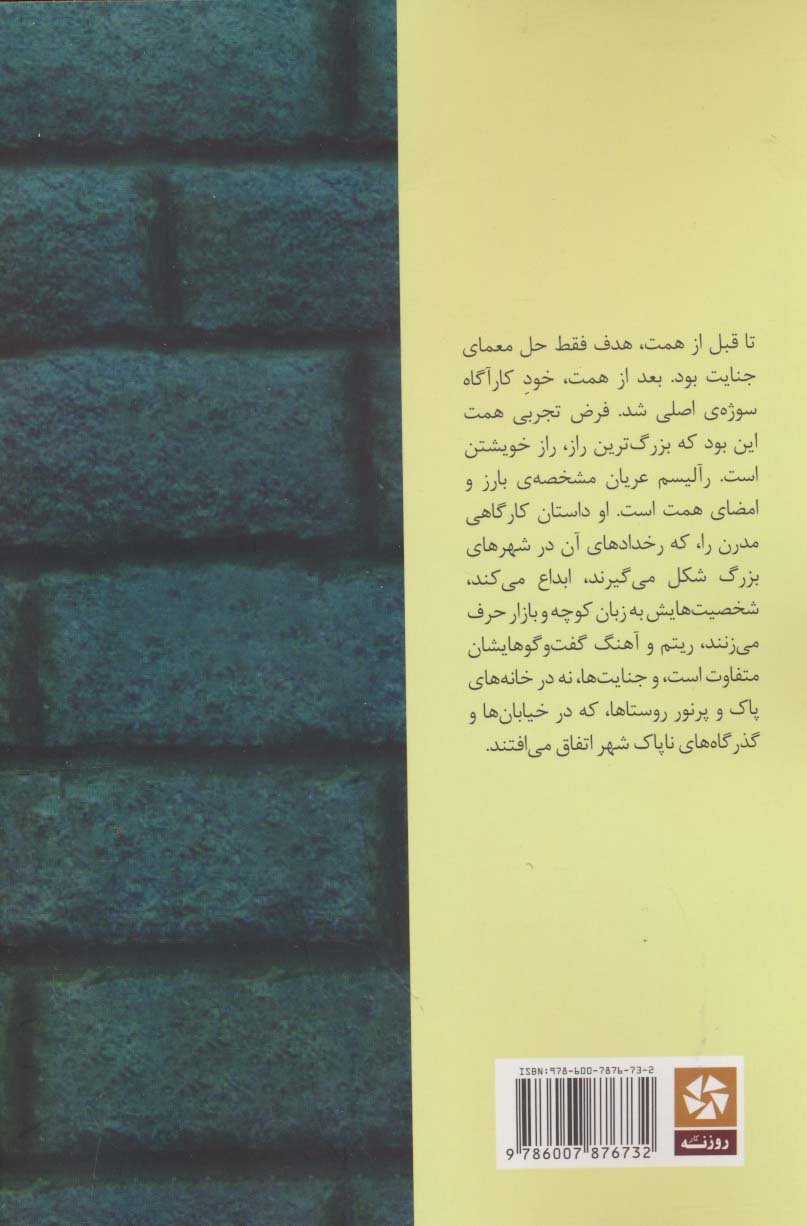 تا قبل از همت، هدف فقط حل معمای
جنایت بود. بعد از همت، خودِ کارآگاه
سوژه‌ی اصلی شد. فرض تجربی همت
این بود که بزرگ‌ترین راز، راز خویشتن
است. رآلیسم عریان مشخصه‌ی بارز و
امضای همت است. او داستان کارگاهی
مدرن را، که رخدادهای آن در شهرهای
بزرگ شکل می‌گیرند، ابداع می‌کند،
شخصیت‌هایش به زبان کوچه و بازار حرف
می‌زنند، ریتم و آهنگ گفت‌وگوهایشان
متفاوت است، و جنایت‌ها، نه در خانه‌های
پاک و پرنور روستاها، که در خیابان‌ها و
گذرگاه‌های ناپاک شهر اتفاق می‌افتند.
ISBN: 978-600-7876-73-2
9 786007 876732
روزنه کار